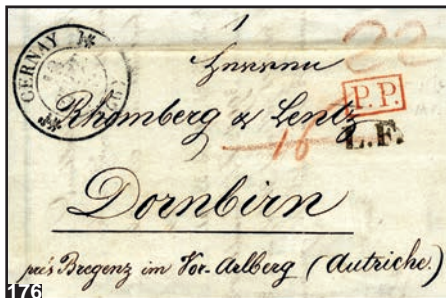 1
CERNAY
(67)
22
Herren
P.P.
Rhomberg & Lentz
16
L.F.
Dornbirn
près Bregenz im Vor-Arlberg (Autriche.)
176